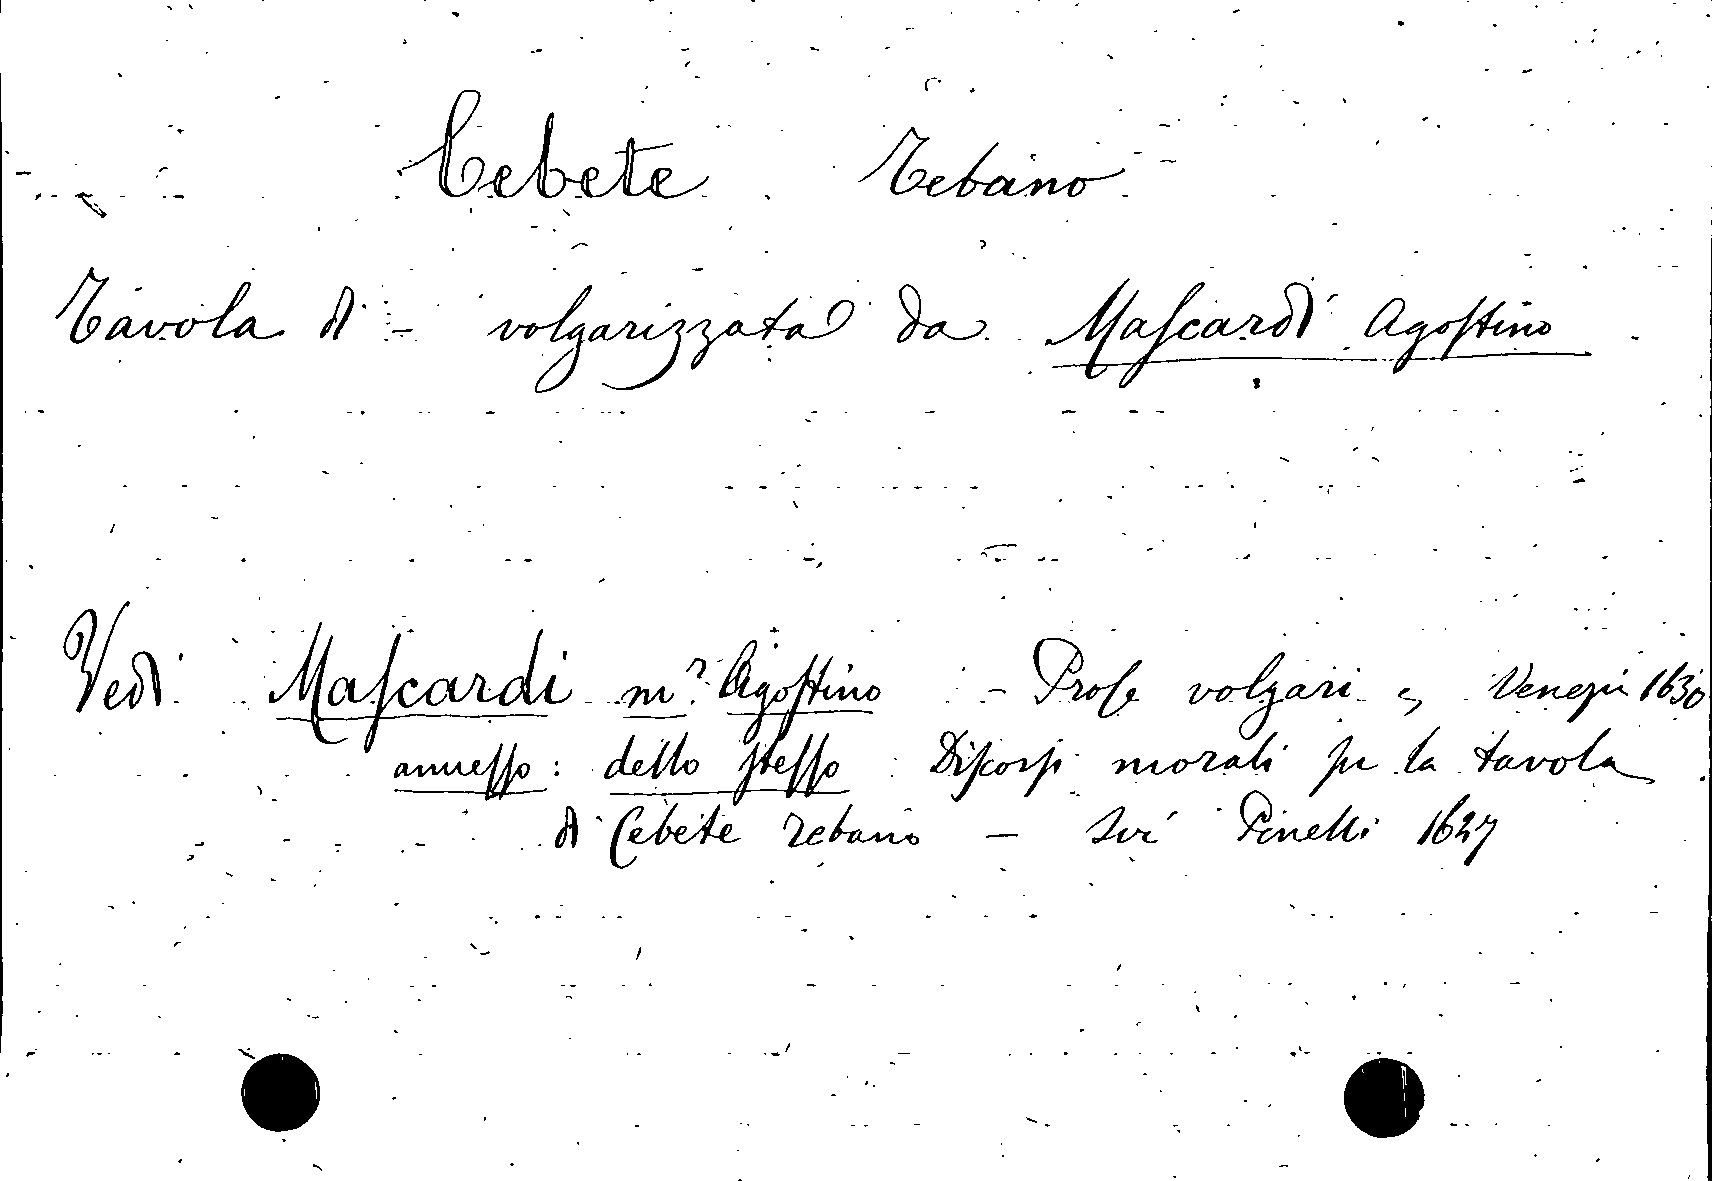 Cebete Tebano
Tavola di - volgarizzata da Maſcardi Agoſtino
Vedi Maſcardi m.r Agoſtino - Proſe volgari " Venezia 1630
anneſſo: dello ſteſſo Diſcorſi morali ſu la tavola
di Cebete Tebano - ivi Pinelli 1627